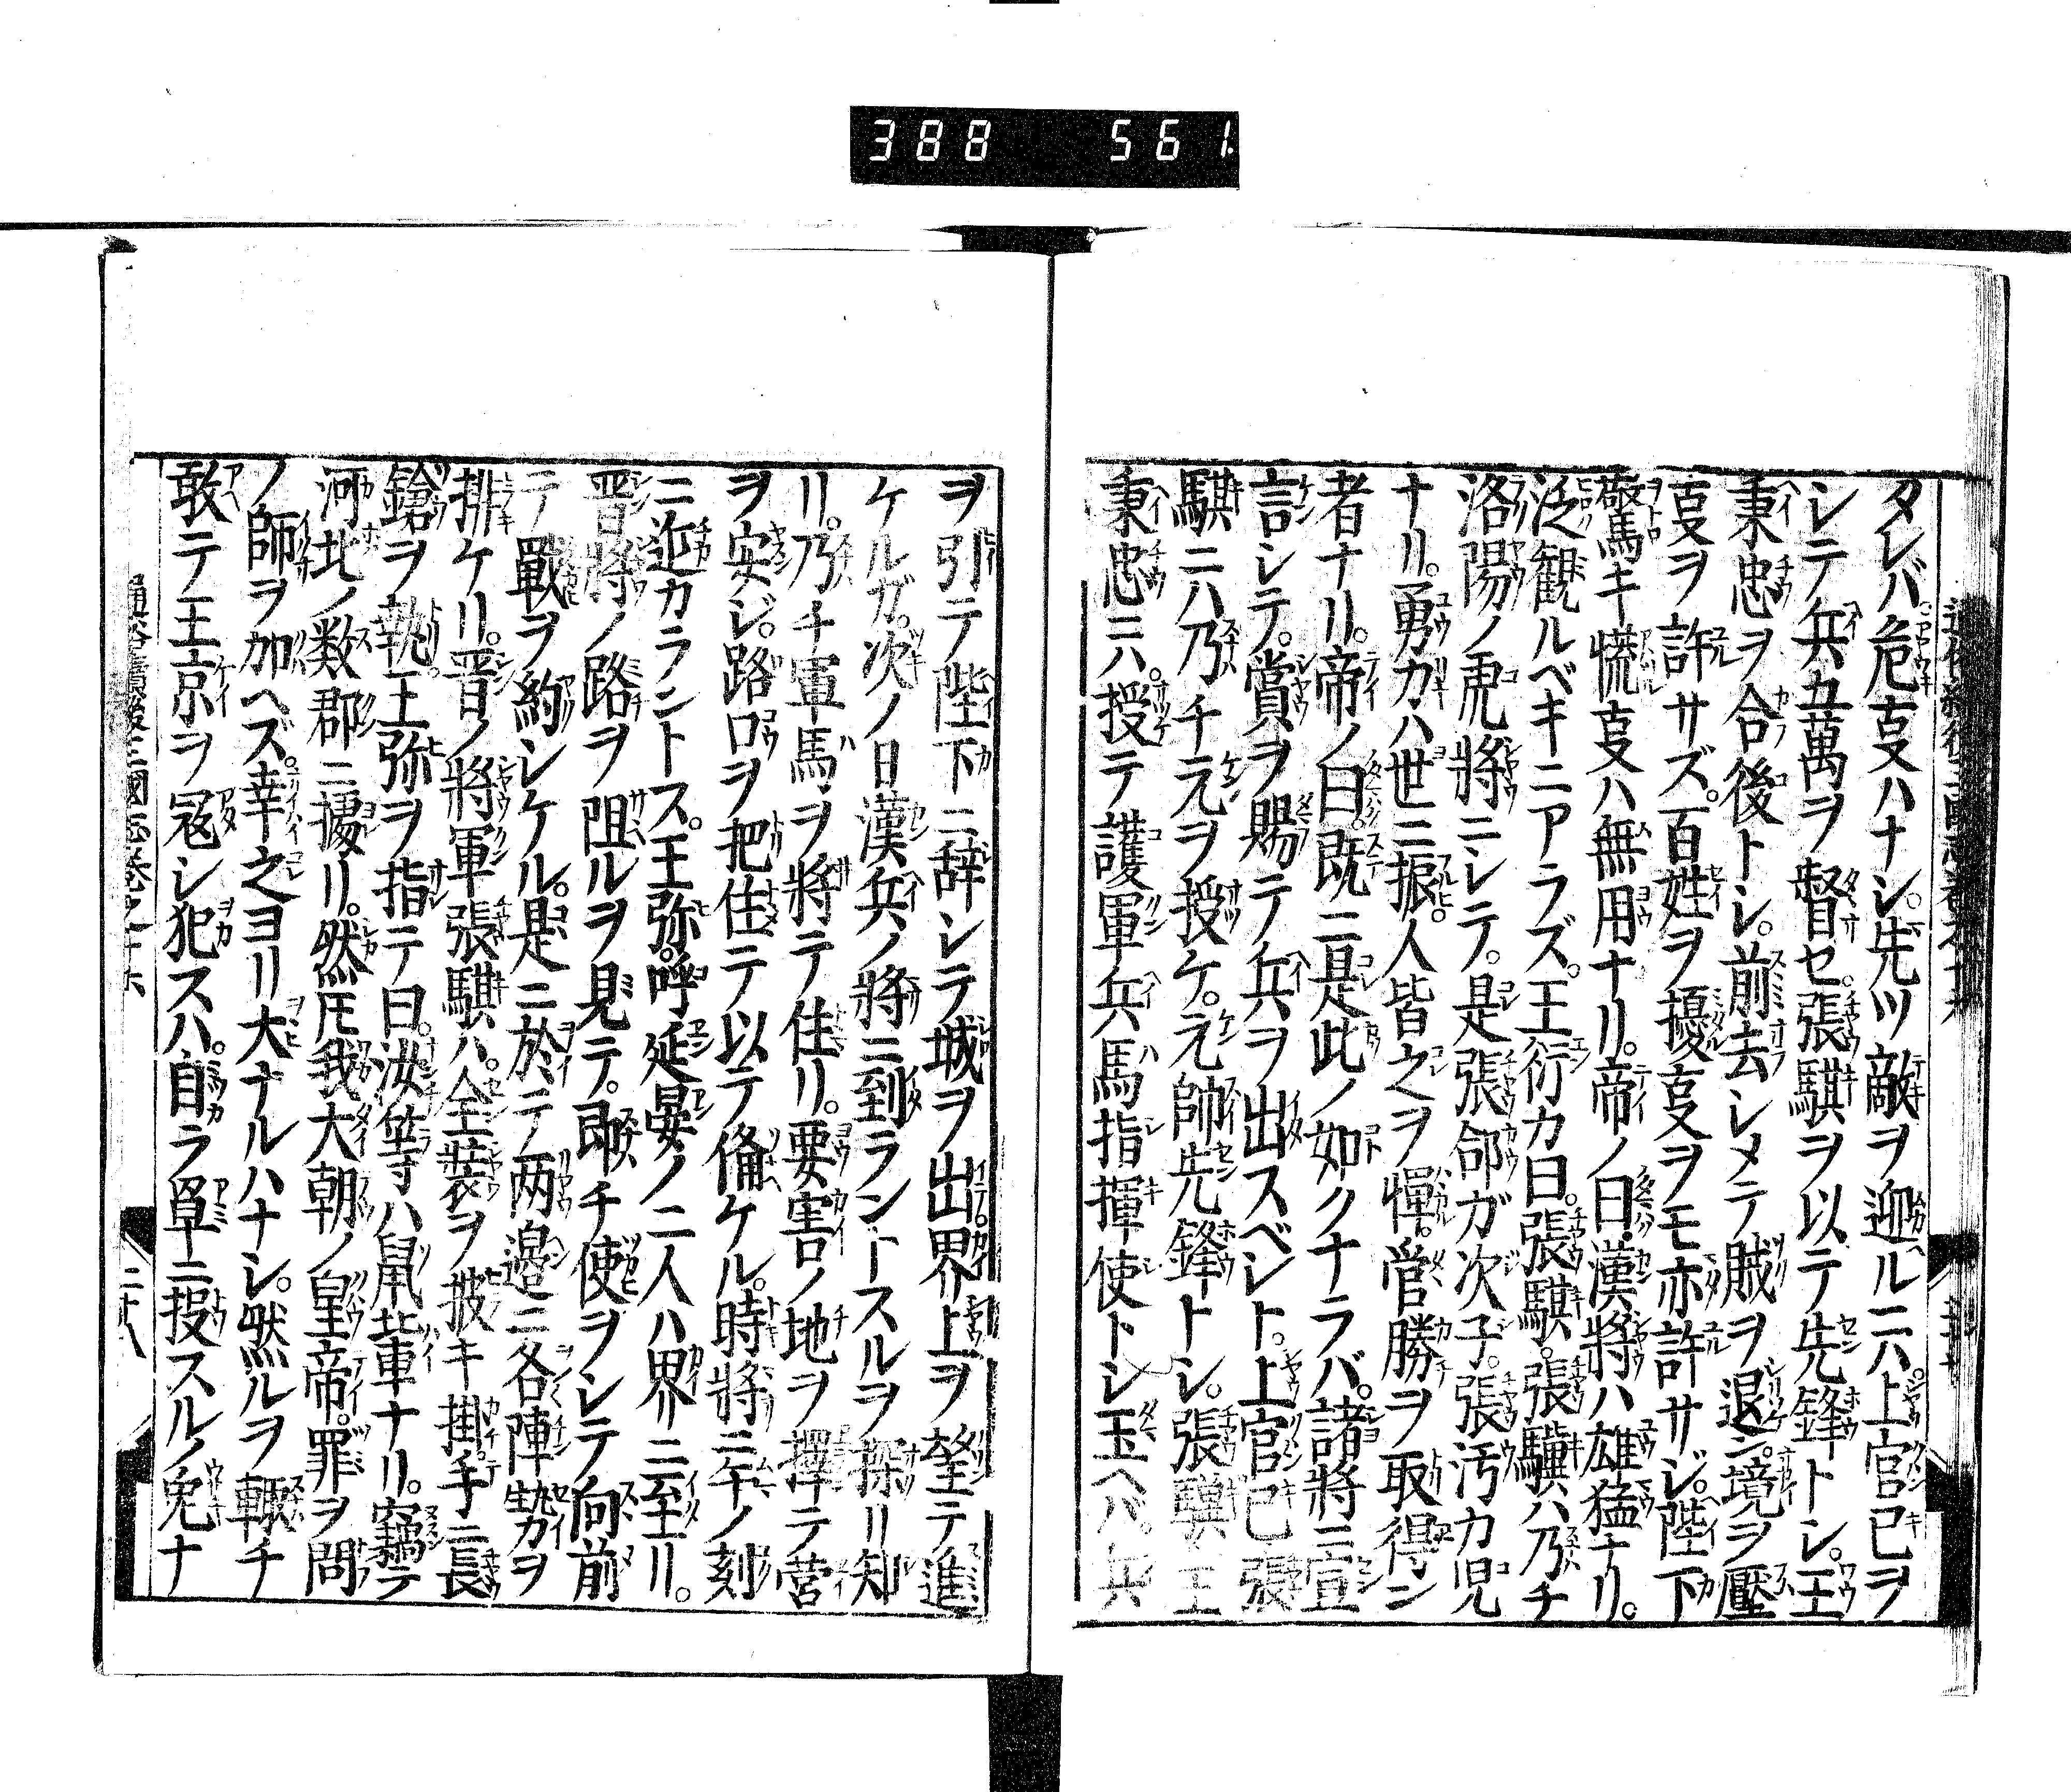 388 561.
タレバ。危夏ハナシ。先ツ敵ヲ迎ルニハ。上官已ヲ
シテ兵五萬ヲ督セ。張騏ヲ以テ先鋒トシ。王
秉忠ヲ合後トシ。前去シメテ賊ヲ退ン。境ヲ壓
夏ヲ許サズ。百姓ヲ擾夏ヲモ亦許サジ。陛下
驚キ慌夏ハ無用ナリ。帝ノ曰。漢將ハ雄猛ナリ。
泛観ルベキニアラズ。王衍カ曰。張騏。張驥ハ乃チ
洛陽ノ虎將ニシテ。是張郃ガ次子。張汚カ児
ナリ。勇力ハ世ニ振。人皆之ヲ憚。管勝ヲ取得ン
者ナリ。帝ノ曰。既ニ是此ノ如クナラバ。諸將ニ宣
言シテ。賞ヲ賜テ兵ヲ出スベシト。上官已張
騏ニハ乃チ元ヲ授ケ。元帥先鋒トシ。張驥王
秉忠ニハ。授テ護軍兵馬指揮使トシ玉ヘバ。兵
ヲ引テ陛下ニ辞シテ城ヲ出。界上ヲ望テ進
ケルガ。次ノ日漢兵ノ將ニ到ラントスルヲ探リ知
リ。乃チ軍馬ヲ將テ住リ。要害ノ地ヲ擇テ営
ヲ安ジ。路口ヲ把住テ以テ偹ケル。時將ニ午ノ刻
ニ近カラントス。王弥。呼延晏ノ二人ハ界ニ至リ。
晋將ノ路ヲ阻ルヲ見テ。即チ使ヲシテ向前
テ戰ヲ約シケル。是ニ於テノ两邉ニ各陣勢ヲ
排ケリ。晋ノ將軍張騏ハ。全装ヲ披キ掛。手ニ長
鎗ヲ執。王弥ヲ指テ曰。汝等ハ鼠輩ナリ。竊テ
河北ノ数郡ニ據リ。然𪜈我大朝ノ皇帝。罪ヲ問
ノ師ヲ加ヘズ。幸之ヨリ大ナルハナシ。然ルヲ輙チ
敢テ王京ヲ冦シ犯スハ。自ラ𦊆ニ投スルノ兔ナ
二十八